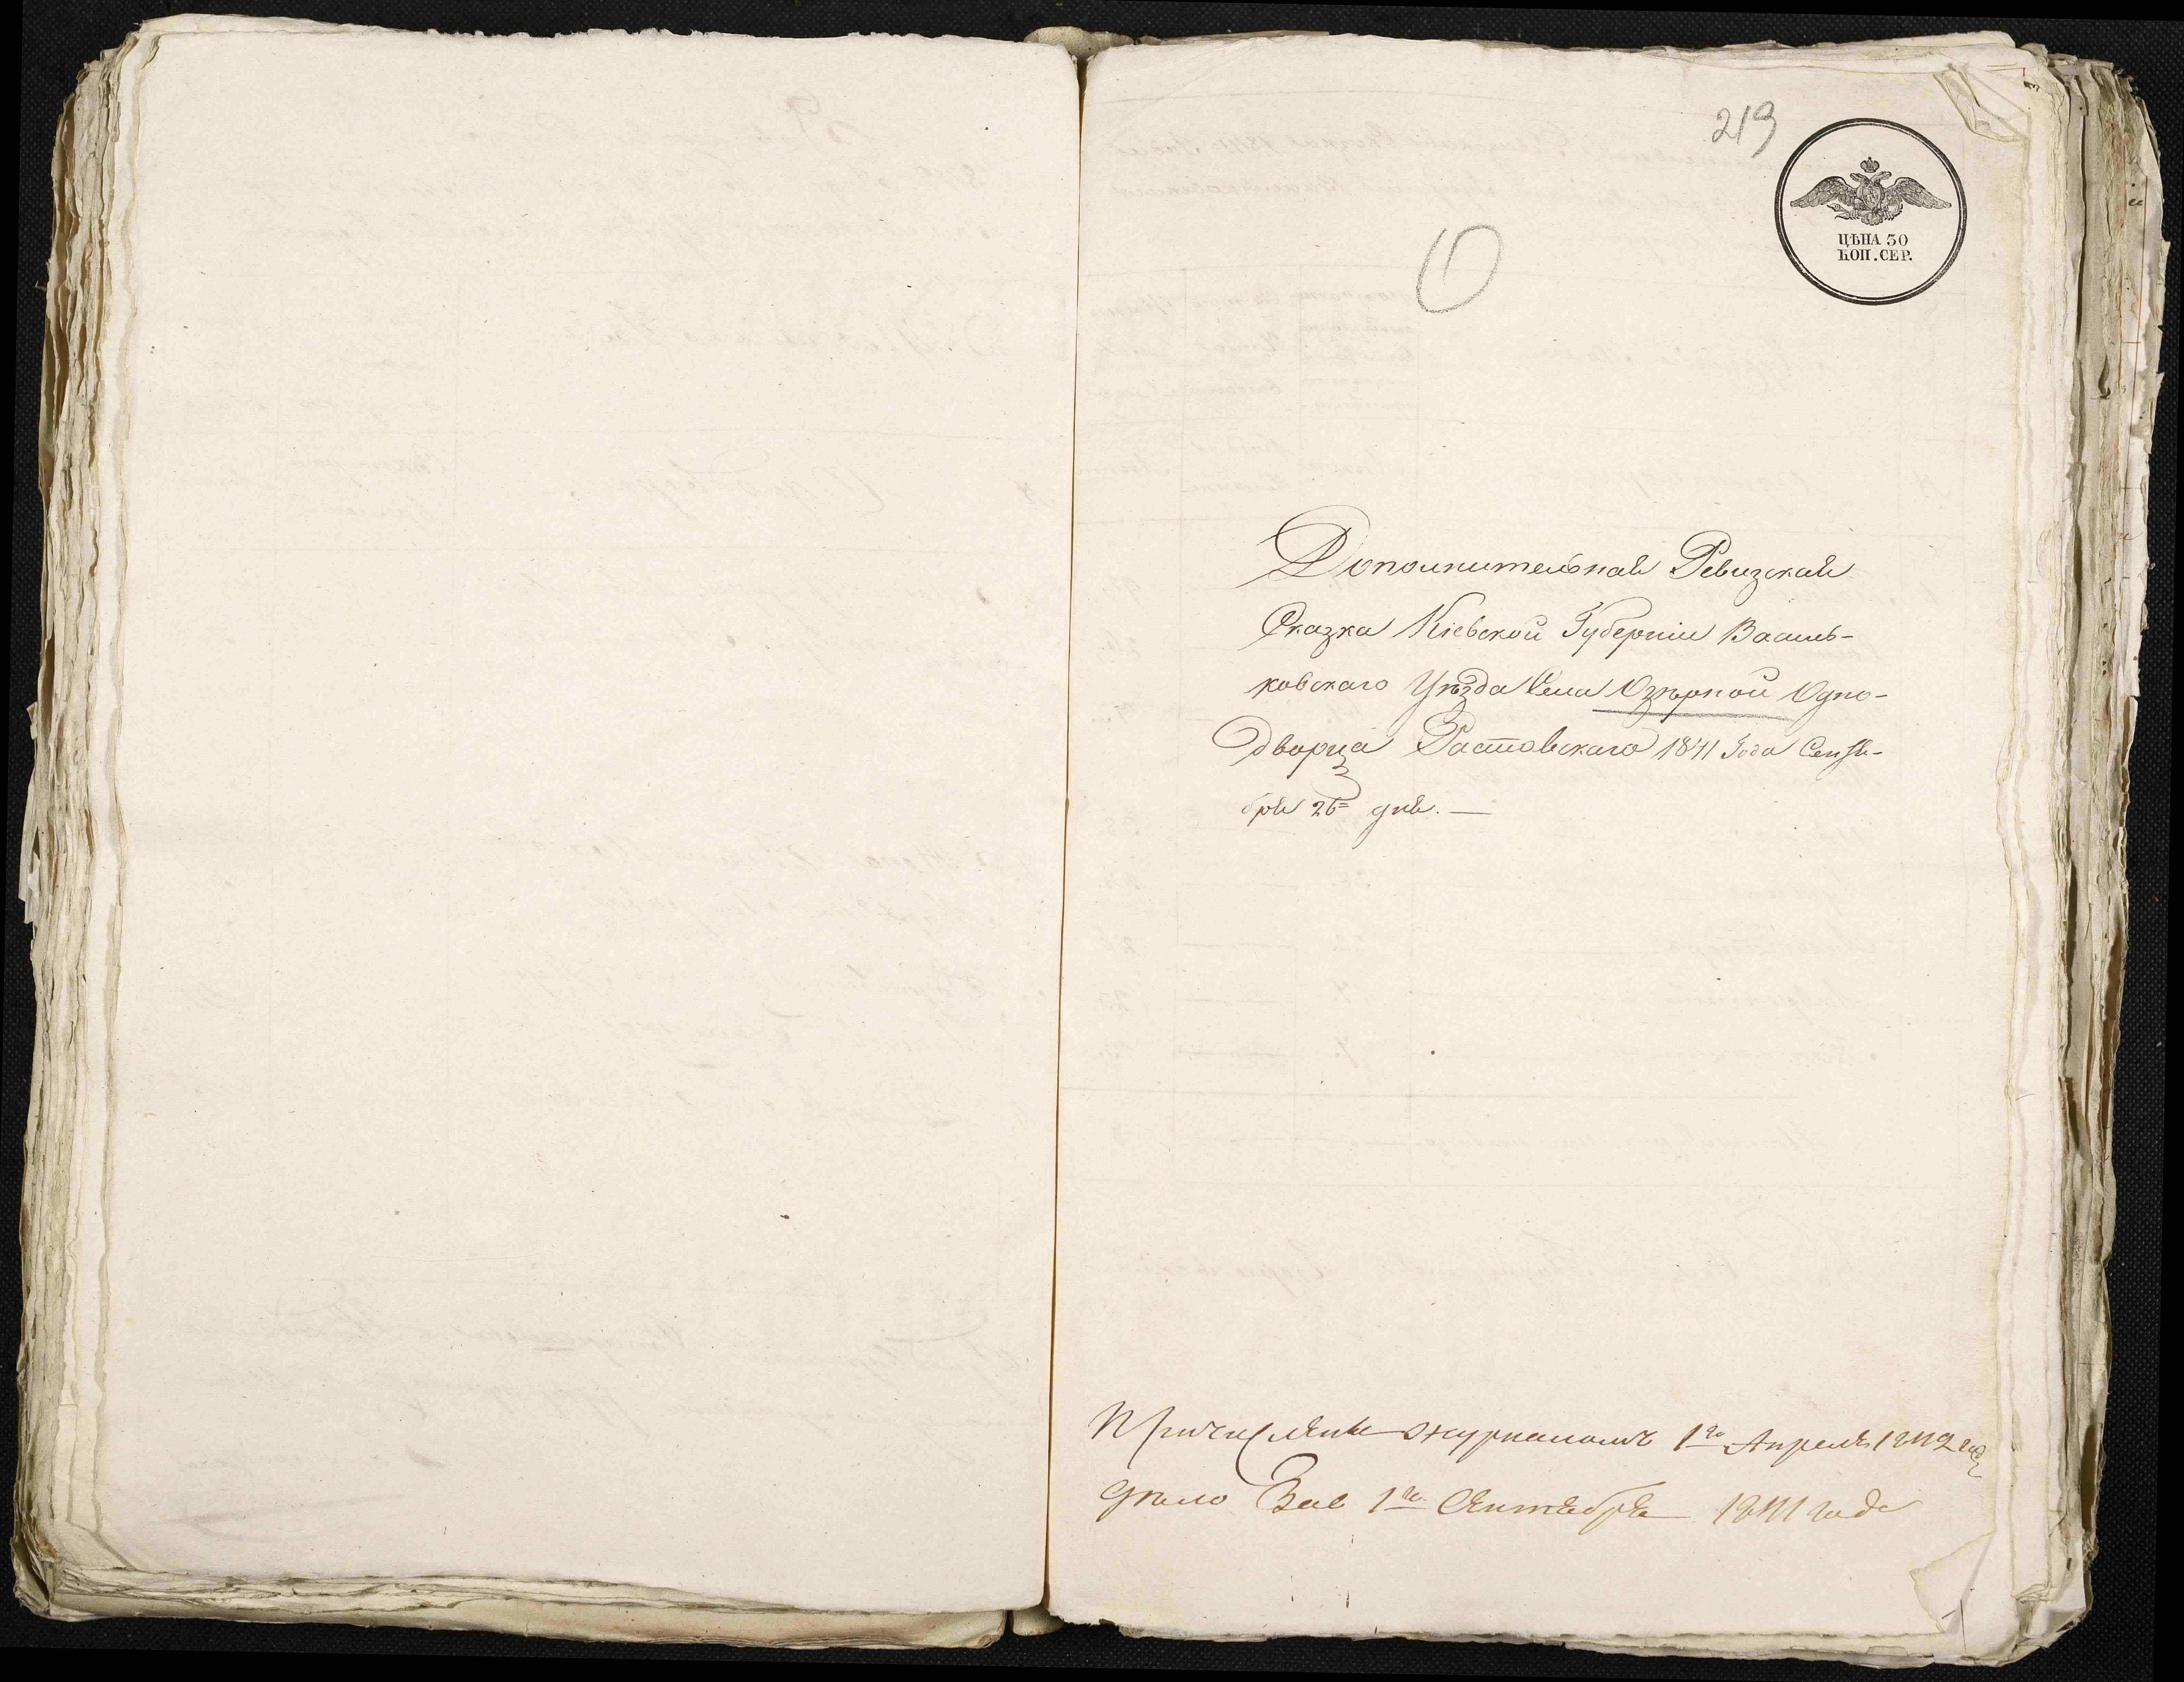 219
ЦѢНА 30
КОП. СЕР.
О
Дополнительная Ревизская
Сказка Кіевской Губерніи Василь-
ковскаго Уѣзда Села Озѣрной Одно-
дворца Ростовскаго 1841 Года Сентя-
бря 26 дня. —
Причислены журналомъ 1го Апреля 1842 года
1го Сентября 1841 года